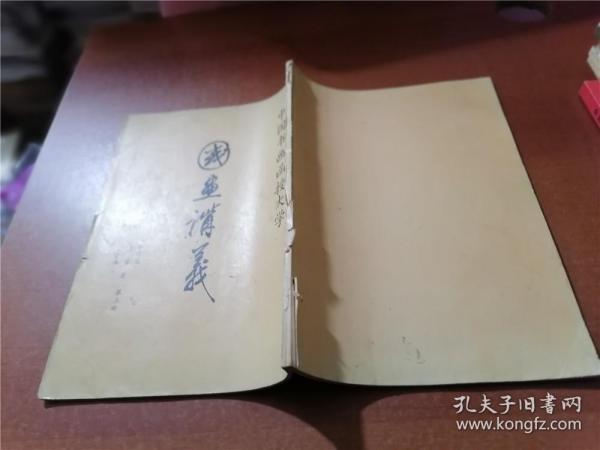 國画講義
中国书画函授大学
孔夫子旧书网
www.kongfz.com